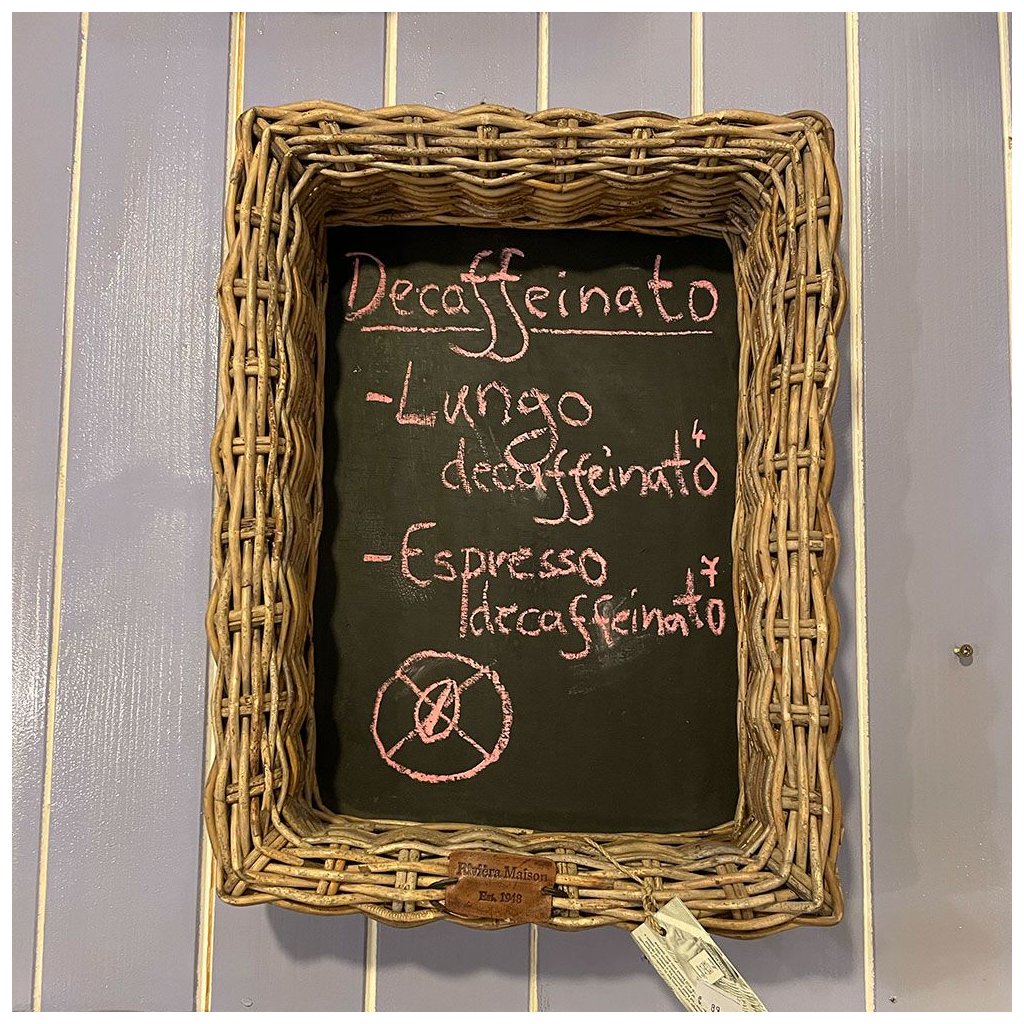 Decaffeinato
- Lungo
decaffeinato 4
- Espresso
decaffeinato 7
Rivièra Maison
Est. 1948